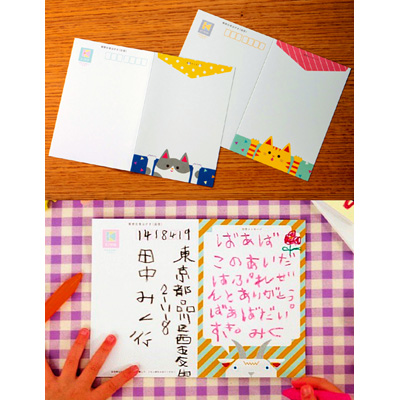 1418419
東京都品川区西五反田
2-11-8
田中みく行
ばあば
このあいだ
はぷれぜ
んとありがとう。
ばあばだい
すき。みく